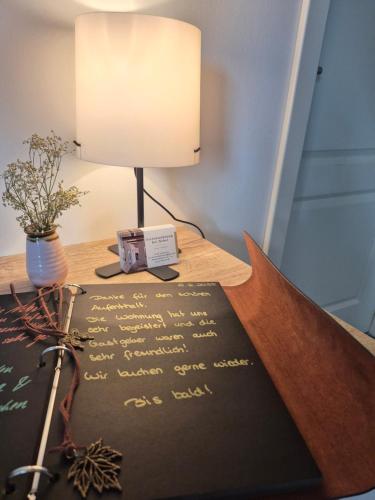 Danke für den schönen
Aufenthalt.
Die Wohnung hat uns
sehr begeistert und die
Gastgeber waren auch
sehr freundlich!
Wir buchen gerne wieder.
Bis bald!